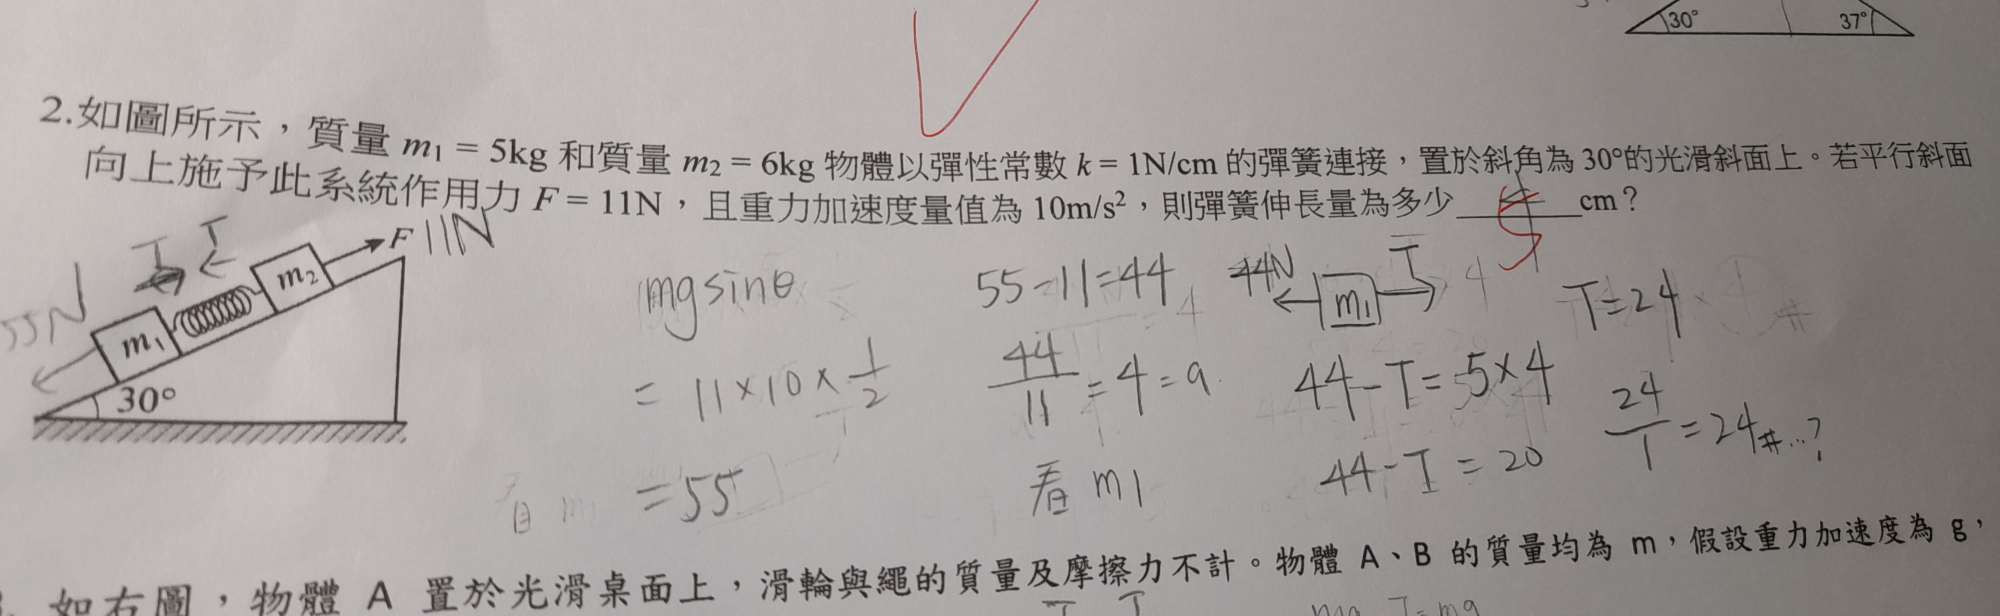 30° 37°
2.如圖所示，質量 m₁ = 5kg 和質量 m₂ = 6kg 物體以彈性常數 k = 1N/cm 的彈簧連接，置於斜角為 30°的光滑斜面上。若平行斜面
向上施予此系統作用力 F = 11N，且重力加速度量值為 10m/s²，則彈簧伸長量為多少 5 cm？
T T F 11N
m₂
55N
m₁
30°
mg sinθ
= 11×10×1/2
= 55
55-11=44
44/11 = 4 = a
看 m1
44N m₁ T
44-T=5×4
44-T=20
T=24
24/1 = 24#...?
如右圖，物體 A 置於光滑桌面上，滑輪與繩的質量及摩擦力不計。物體 A、B 的質量均為 m，假設重力加速度為 g，
T T mg T=mg